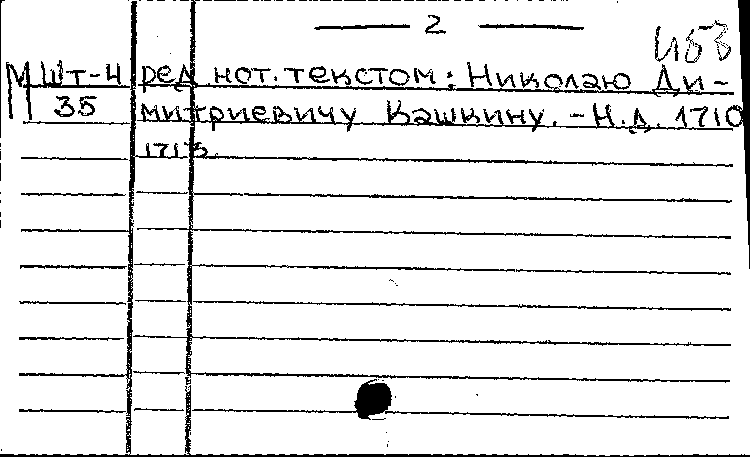 — 2 —
М Шт-4 ред нот. текстом: Николаю Ди-
35 митриевичу Кашкину. - Н.д. 1710
17175